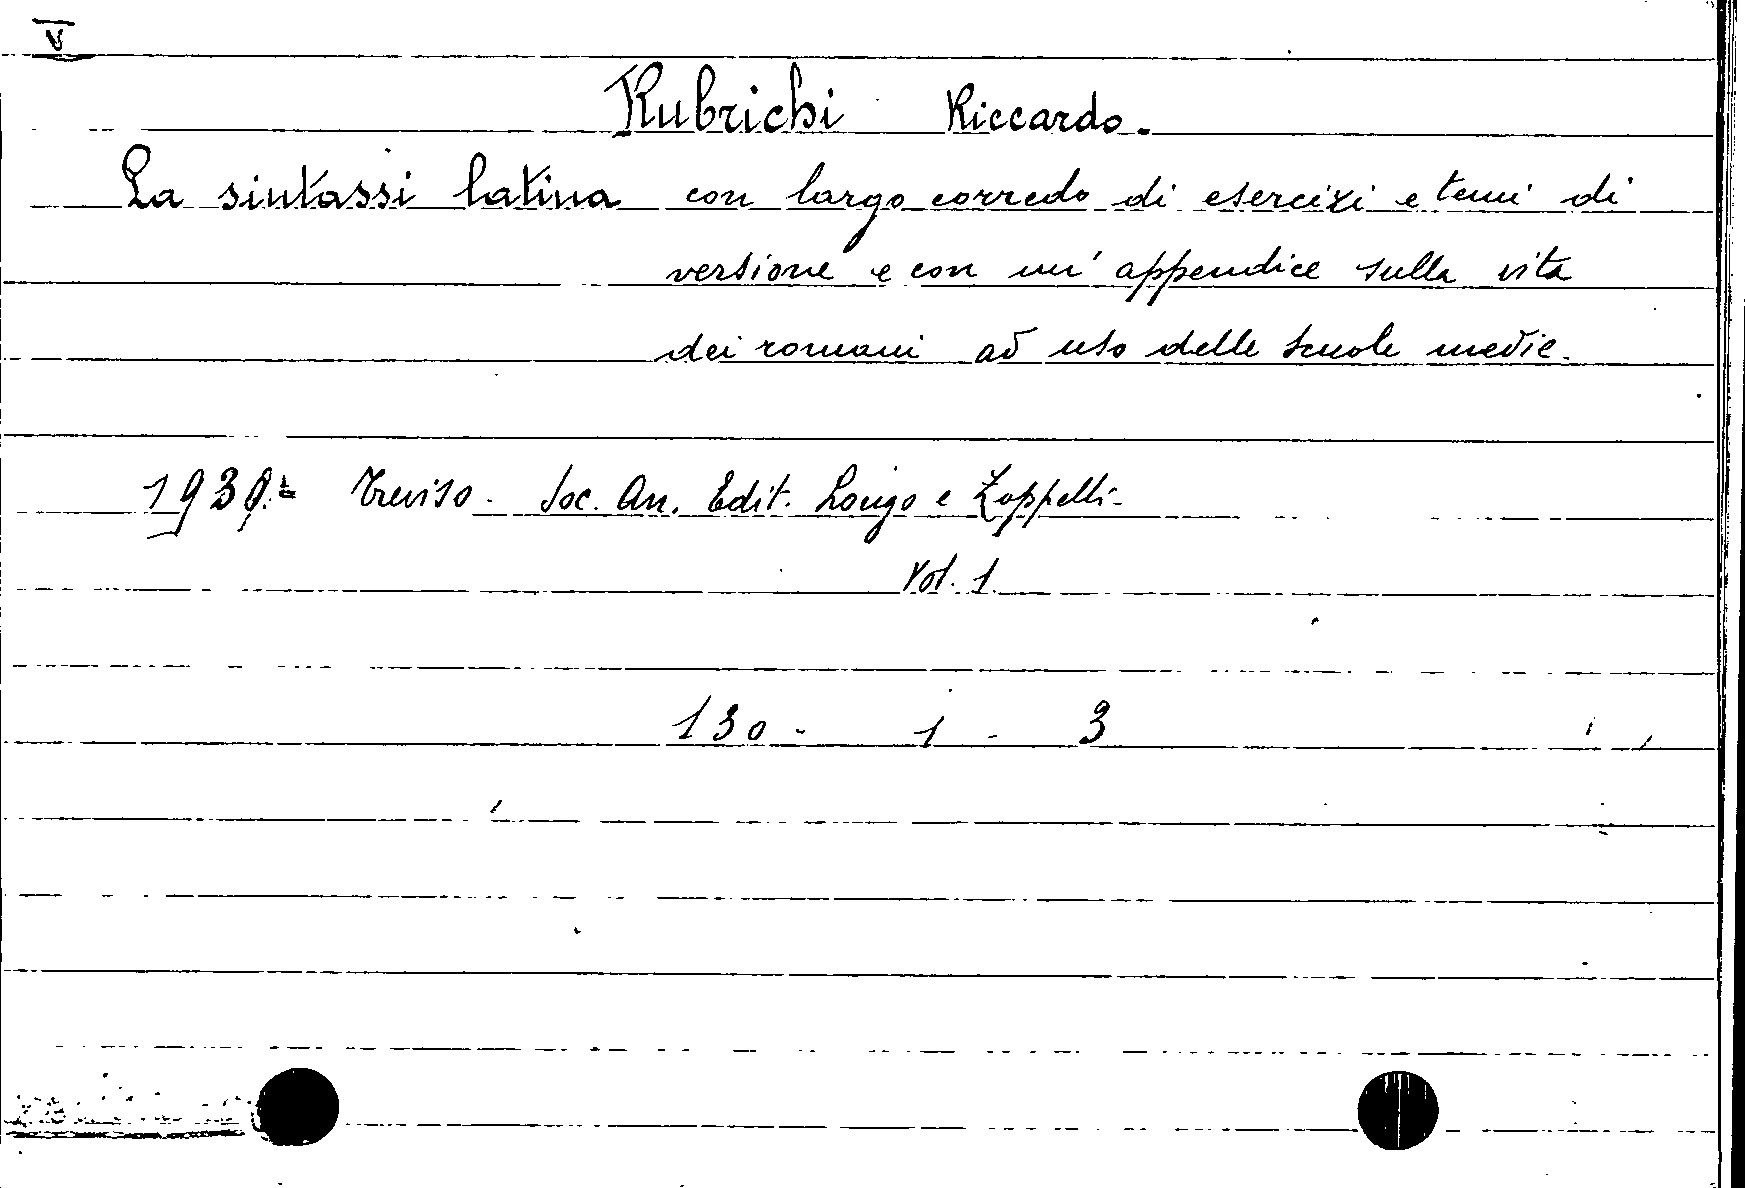 V
Rubrichi Riccardo.
La sintassi latina con largo corredo di esercizi e temi di
versione e con un' appendice sulla vita
dei romani ad uso delle scuole medie.
Treviso - Soc. An. Edit. Longo e Zoppelli -
Vol. 1
130 - 1 - 3